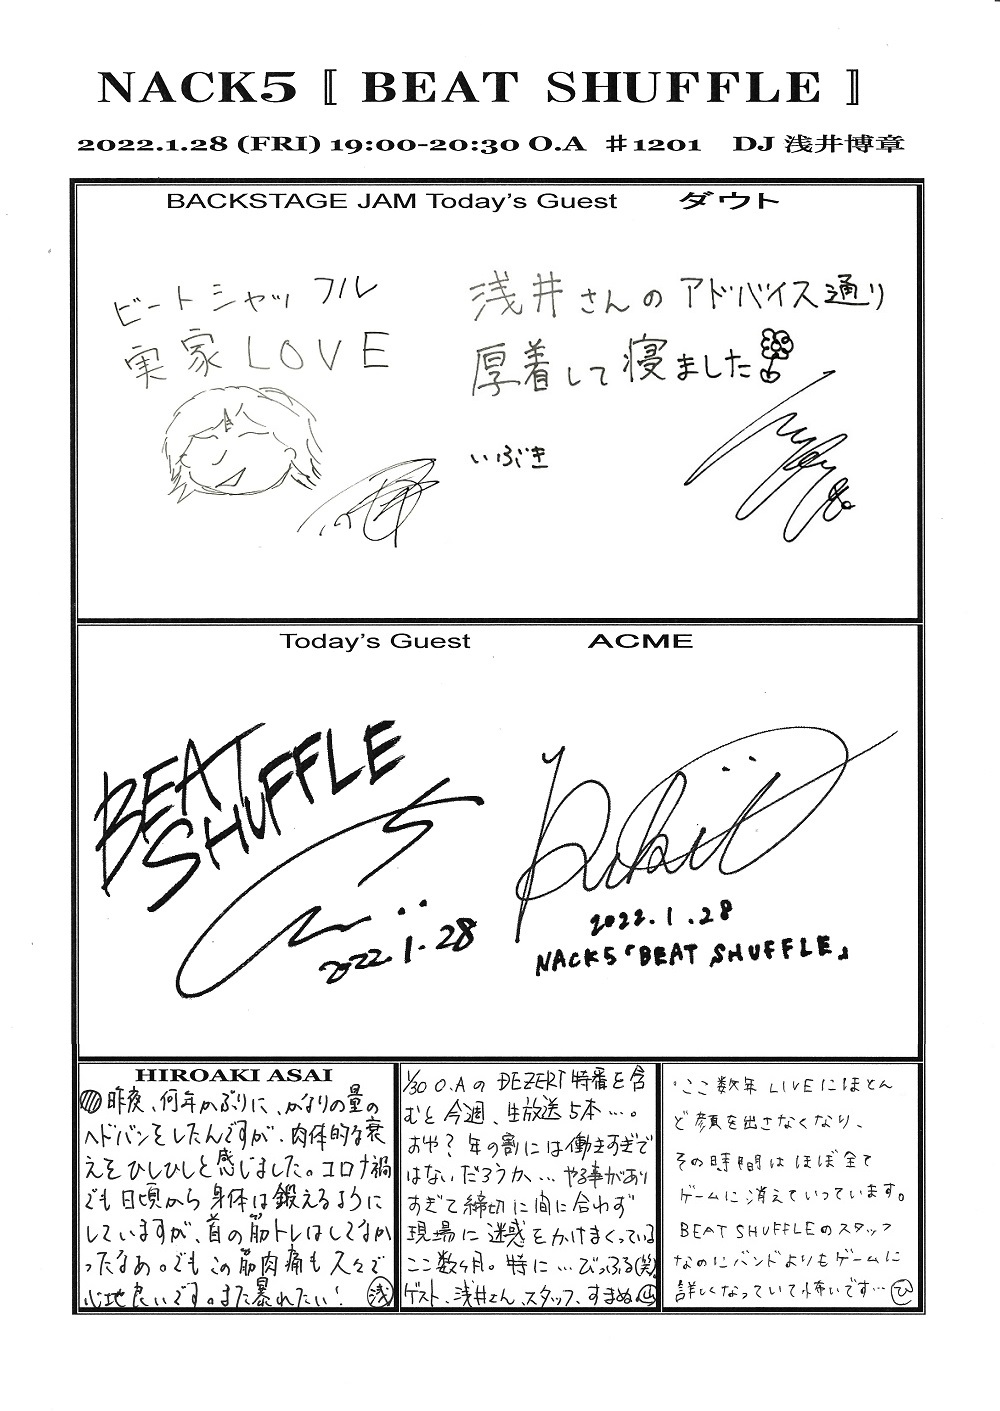 NACK5 〚 BEAT SHUFFLE 〛
2022.1.28 (FRI) 19:00-20:30 O.A ♯1201 DJ 浅井博章
BACKSTAGE JAM Today's Guest ダウト
ビートシャッフル
実家LOVE
浅井さんのアドバイス通り
厚着して寝ました
いぶき
Today's Guest ACME
BEAT
SHUFFLE
2022.1.28
2022.1.28
NACK5「BEAT SHUFFLE」
HIROAKI ASAI
昨夜、何年かぶりに、かなりの量の
ヘドバンをしたんですが、肉体的な衰
えをひしひしと感じました。コロナ禍
でも日頃から身体は鍛えるように
していますが、首の筋トレはしてなか
ったなあ。でもこの筋肉痛も久々で
心地良いです。また暴れたい! 浅
1/30 O.AのDEZERT特番を含
むと今週、生放送5本…。
おや?年の割には働きすぎで
はないだろうか…やる事があり
すぎて締切に間に合わず
現場に迷惑をかけまくっている
ここ数ヶ月。特に…びっふる(笑)
ゲスト、浅井さん、スタッフ、すまぬ。山
・ここ数年LIVEにほとん
ど顔を出さなくなり、
その時間はほぼ全て
ゲームに消えていっています。
BEAT SHUFFLEのスタッフ
なのにバンドよりもゲームに
詳しくなっていて怖いです… ひ